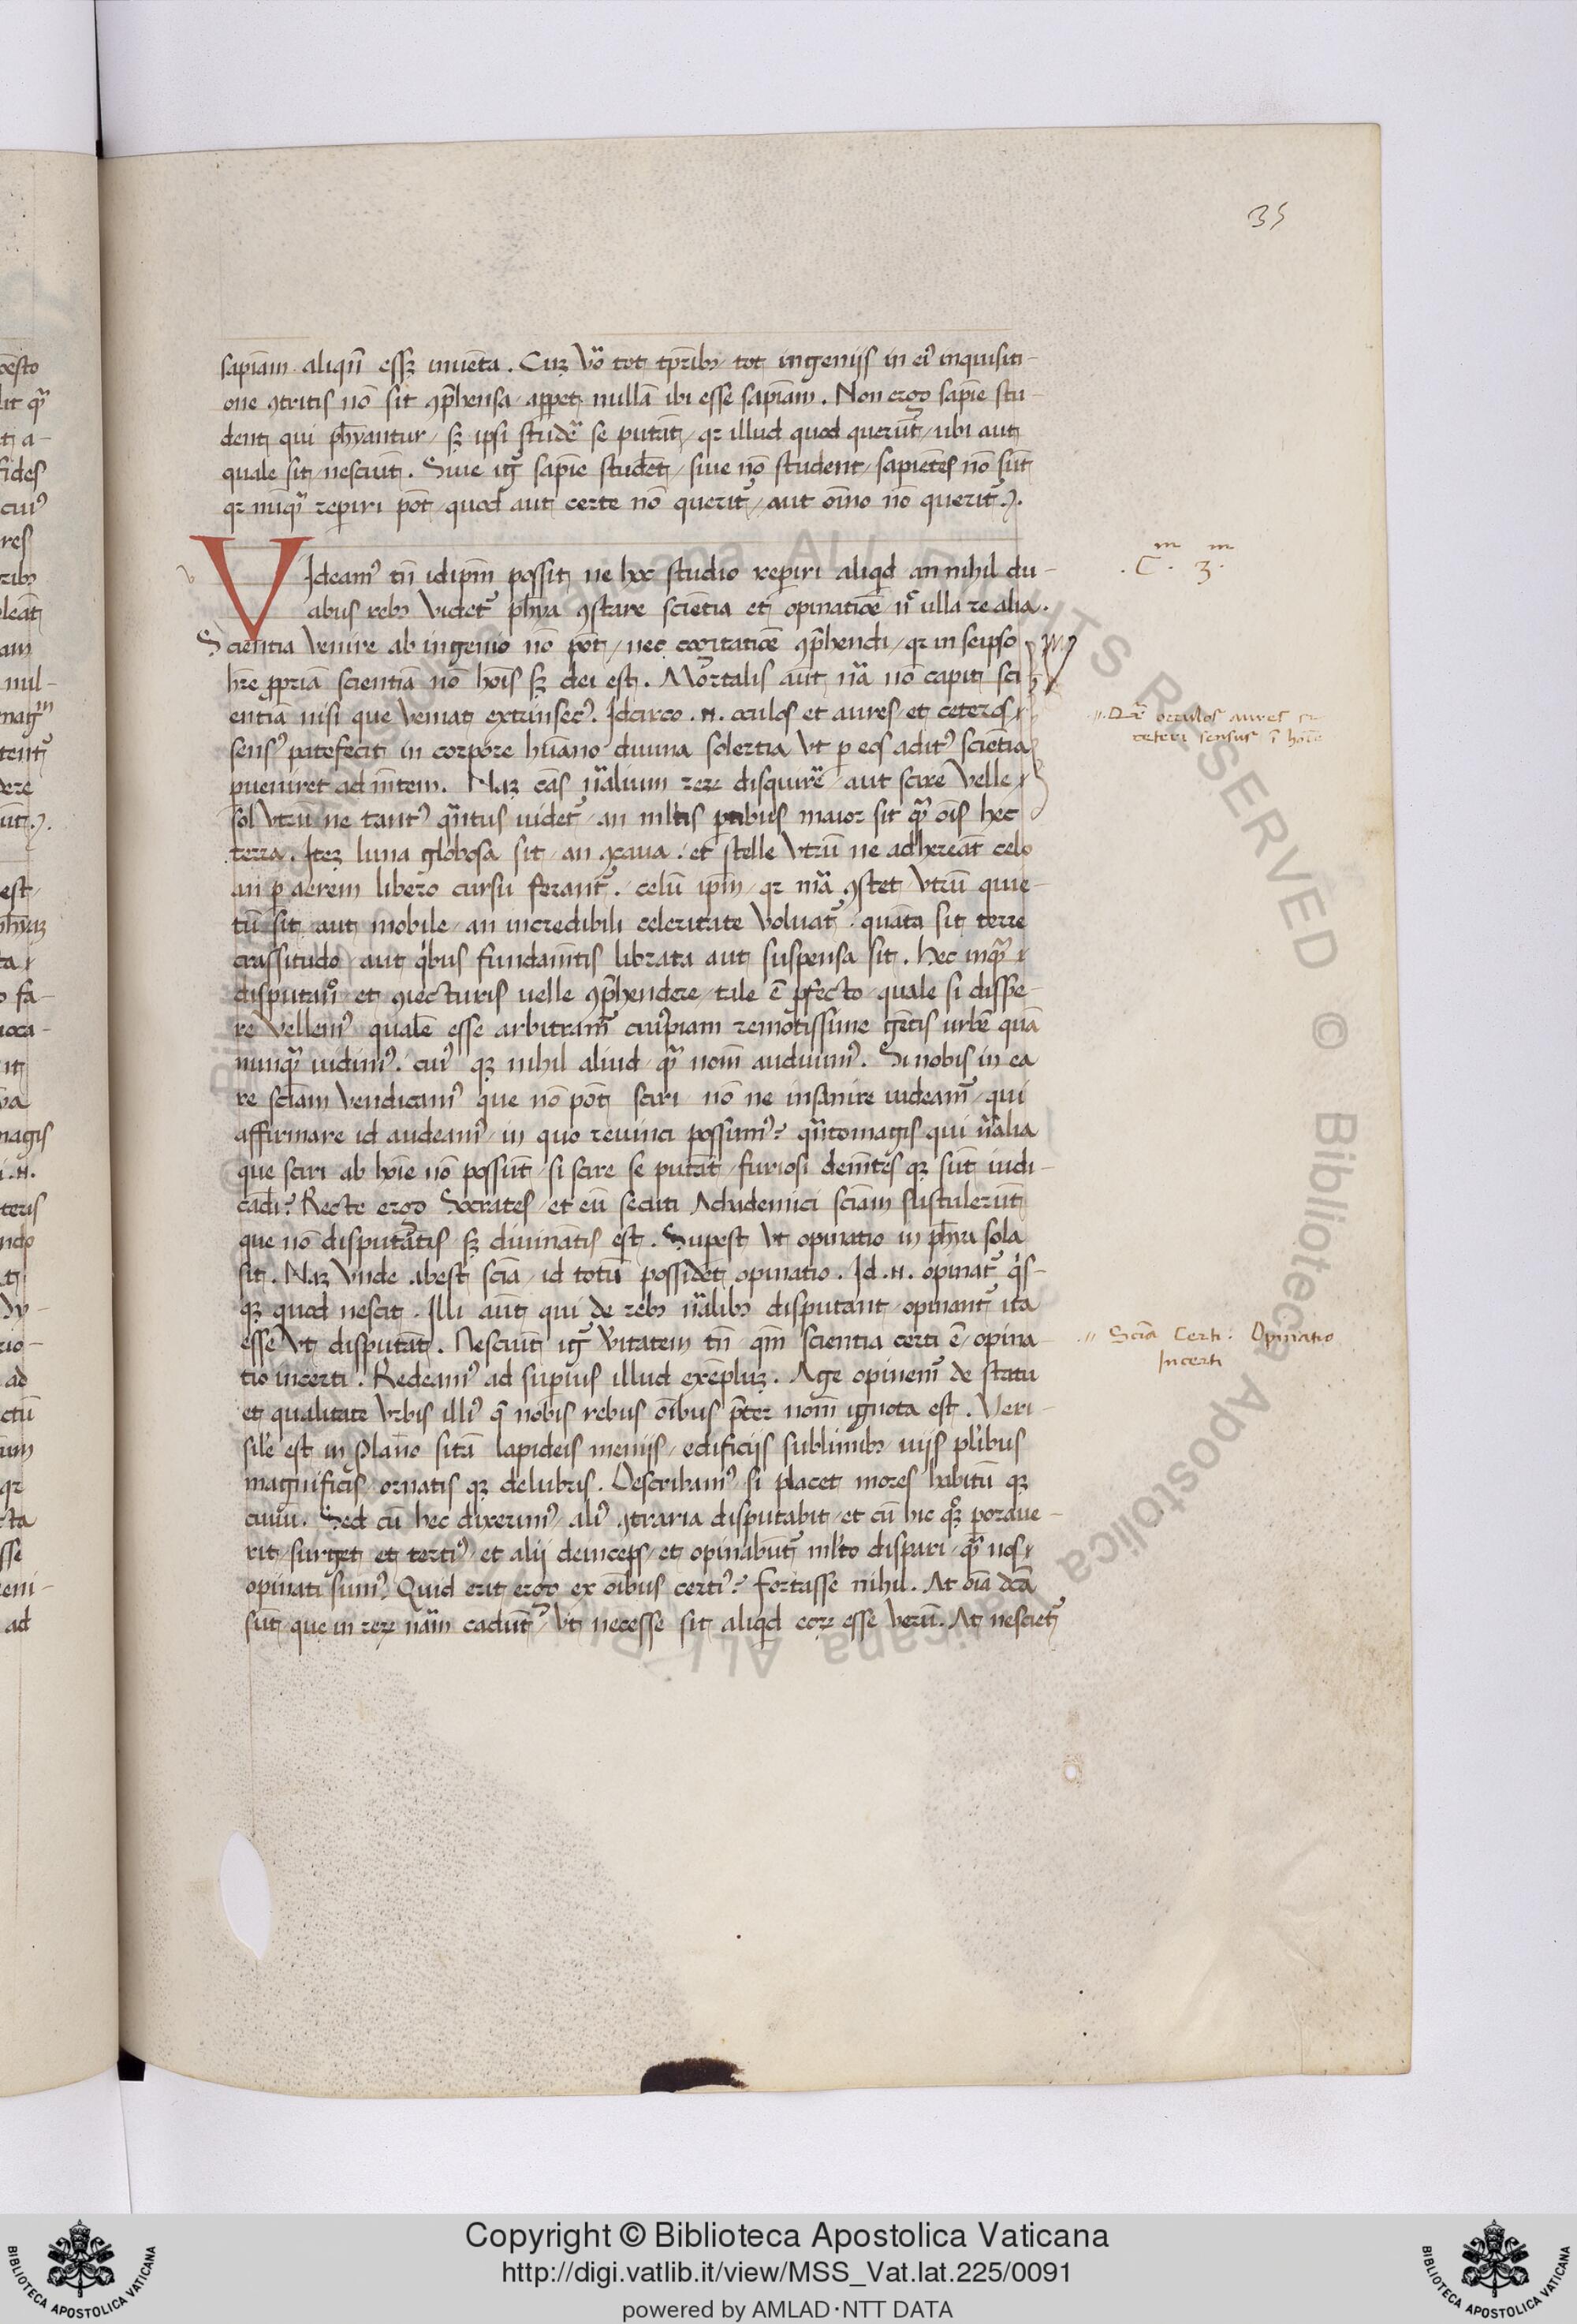 35
sapiam aliqñ essꝫ inuēta. Cuꝫ vō tot tpribꝫ / tot ingenijs in eiꝰ inquisiti-
one ꝯtritis nō sit ꝯp̄hensa / appet nullā ibi esse sapīam. Non ergo sapīe stu-
dent qui ph̄yantur / sꝫ ipsi studē se putāt / qꝛ illud quod querūt / ubi aut
quale sit / nesciūt. Siue igr̄ sapīe studēt / siue nō student / sapiētes nō sūt
qꝛ nūqᷓ reperiri pōt / quod aut certe nō querit᷑ / aut oīno nō querit᷑.
VIdeamꝰ tn̄ idipm̄ possit ne hoc studio reperiri aliqd an nihil du-
abus rebꝫ videt᷑ ph̄ya ꝯstare sciētia et opinatiōe nͨ ulla re alia.
Scientia venire ab ingenio nō pōt / nec cogitatiōe ꝯp̄hendi / qꝛ in seipso
hr̄e ꝓpriā scientiā nō hoīs sꝫ dei est. Mortalis aūt nā nō capit sci
entiā nisi que veniat extrinsecꝰ. Idcirco .n. oculos et aures / et ceteros
sensꝰ patefecit in corpore hūano diuina solertia vt p eos aditꝰ scientia
pueniret ad mētem. Naꝫ cās nālium reꝝ disquirē / aut scire velle
sol vtrū ne tantꝰ qn̄tus uidet᷑ / an mltis ptibus maior sit qᷓ oīs hec
terra. Iteꝫ luna globosa sit / an ꝯcaua. et stelle vtrū ne adhereāt celo
an p aerem libero cursu ferant᷑. celū ipm̄ / qꝛ mā ꝯstet / vtrū quie-
tū sit aut mobile / an incredibili celeritate voluat᷑. quāta sit terre
crassitudo / aut qͥbus fundamētis librata aut suspensa sit. hec inqᷓ
disputan̄o et ꝯiecturis uelle ꝯp̄hendere / tale ē pfecto / quale si disse-
re vellemꝰ qualē esse arbitram᷑ cuiuspiam remotissime gētis urbē quā
nunqᷓ uidimꝰ. cuiꝰ qꝫ nihil aliud / qᷓ nom̄ audiuimꝰ. Si nobis in ea
re sciam vendicamꝰ que nō pōt sciri / nō ne insanire uideam᷑ / qui
affirmare id audeamꝰ / in quo reuinci possumꝰ? qn̄tomagis qui nālia
que sciri ab hoīe nō possūt / si scire se putāt / furiosi demētes qꝫ sūt iudi-
cādi? Recte ergo Socrates / et eū secuti Achademici sciam sustulerūt
que nō disputātis sꝫ diuinātis est. Supest vt opinatio in ph̄ya sola
sit. Naꝫ vnde abest scia / id totū possidet opinatio. Id .n. opinat᷑ qͥs-
qꝫ quod nescit. Illi aūt qui de rebꝫ nālibꝫ disputant / opinant᷑ ita
esse vt disputāt. Nesciūt igr̄ v̄itatem tn̄ qm̄ scientia certi ē / opina-
tio incerti. Redeamꝰ ad superius illud exēpluꝫ. Age opinem᷑ de statu
et qualitate vrbis illiꝰ q̄ nobis rebus oībus p̄ter nom̄ ignota est. Ueri-
sile est in plano sitā lapideis menijs / edificijs sublimibꝫ uijs plībus
magnificis ornatis qꝫ delubris. Describamꝰ si placet mores habitū qꝫ
ciuiū. Sed cū hec dixerimꝰ aliꝰ ꝯtraria disputabit / et cū hic qꝫ poraue-
rit / surget et tertiꝰ / et alij deinceps / et opinabūt᷑ mlto dispari / qᷓ nos
opinati sumꝰ. Quid erit ergo ex oībus certiꝰ? fortasse nihil. At oīa dcā
sūt que in reꝝ nām cadūt / vt necesse sit aliqd eoꝝ esse verū. At nesciet᷑
.Cᵐ. 3ᵐ.
Scīa Certi. Opinatio
Incerti
Copyright © Biblioteca Apostolica Vaticana
http://digi.vatlib.it/view/MSS_Vat.lat.225/0091
powered by AMLAD·NTT DATA
BIBLIOTECA APOSTOLICA VATICANA
BIBLIOTECA APOSTOLICA VATICANA